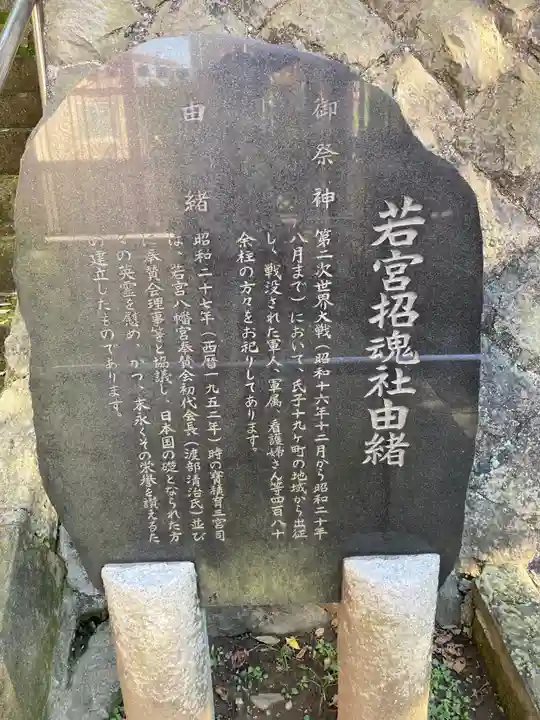 若宮招魂社由緒
御祭神
第二次世界大戦(昭和十六年十二月から昭和二十年
八月まで)において、氏子十九ヶ町の地域から出征
し、戦没された軍人、軍属、看護婦さん等四百八十
余柱の方々をお祀りしてあります。
由緒
昭和二十七年(西暦一九五二年)時の育三宮司
は、若宮八幡宮奉賛会初代会長(渡部清治氏)並び
に奉賛会理事等と協議し、日本国の礎となられた方
々の英霊を慰め、かつ、末永くその栄誉を讃えるた
め建立したものであります。